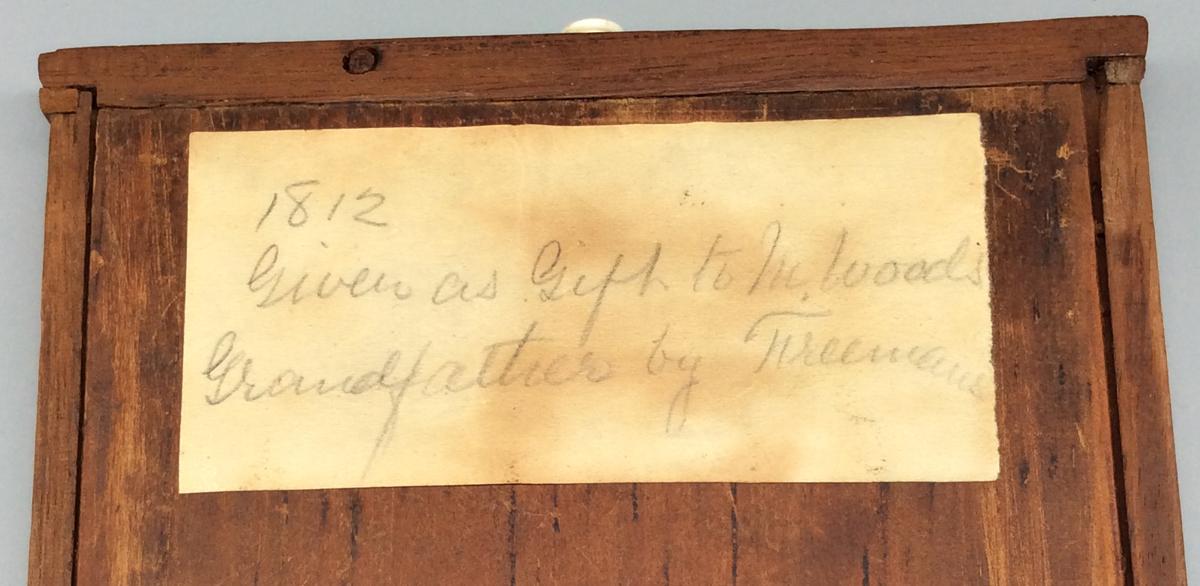 1812
Given as Gift to M. Woods
Grandfather by Freemans